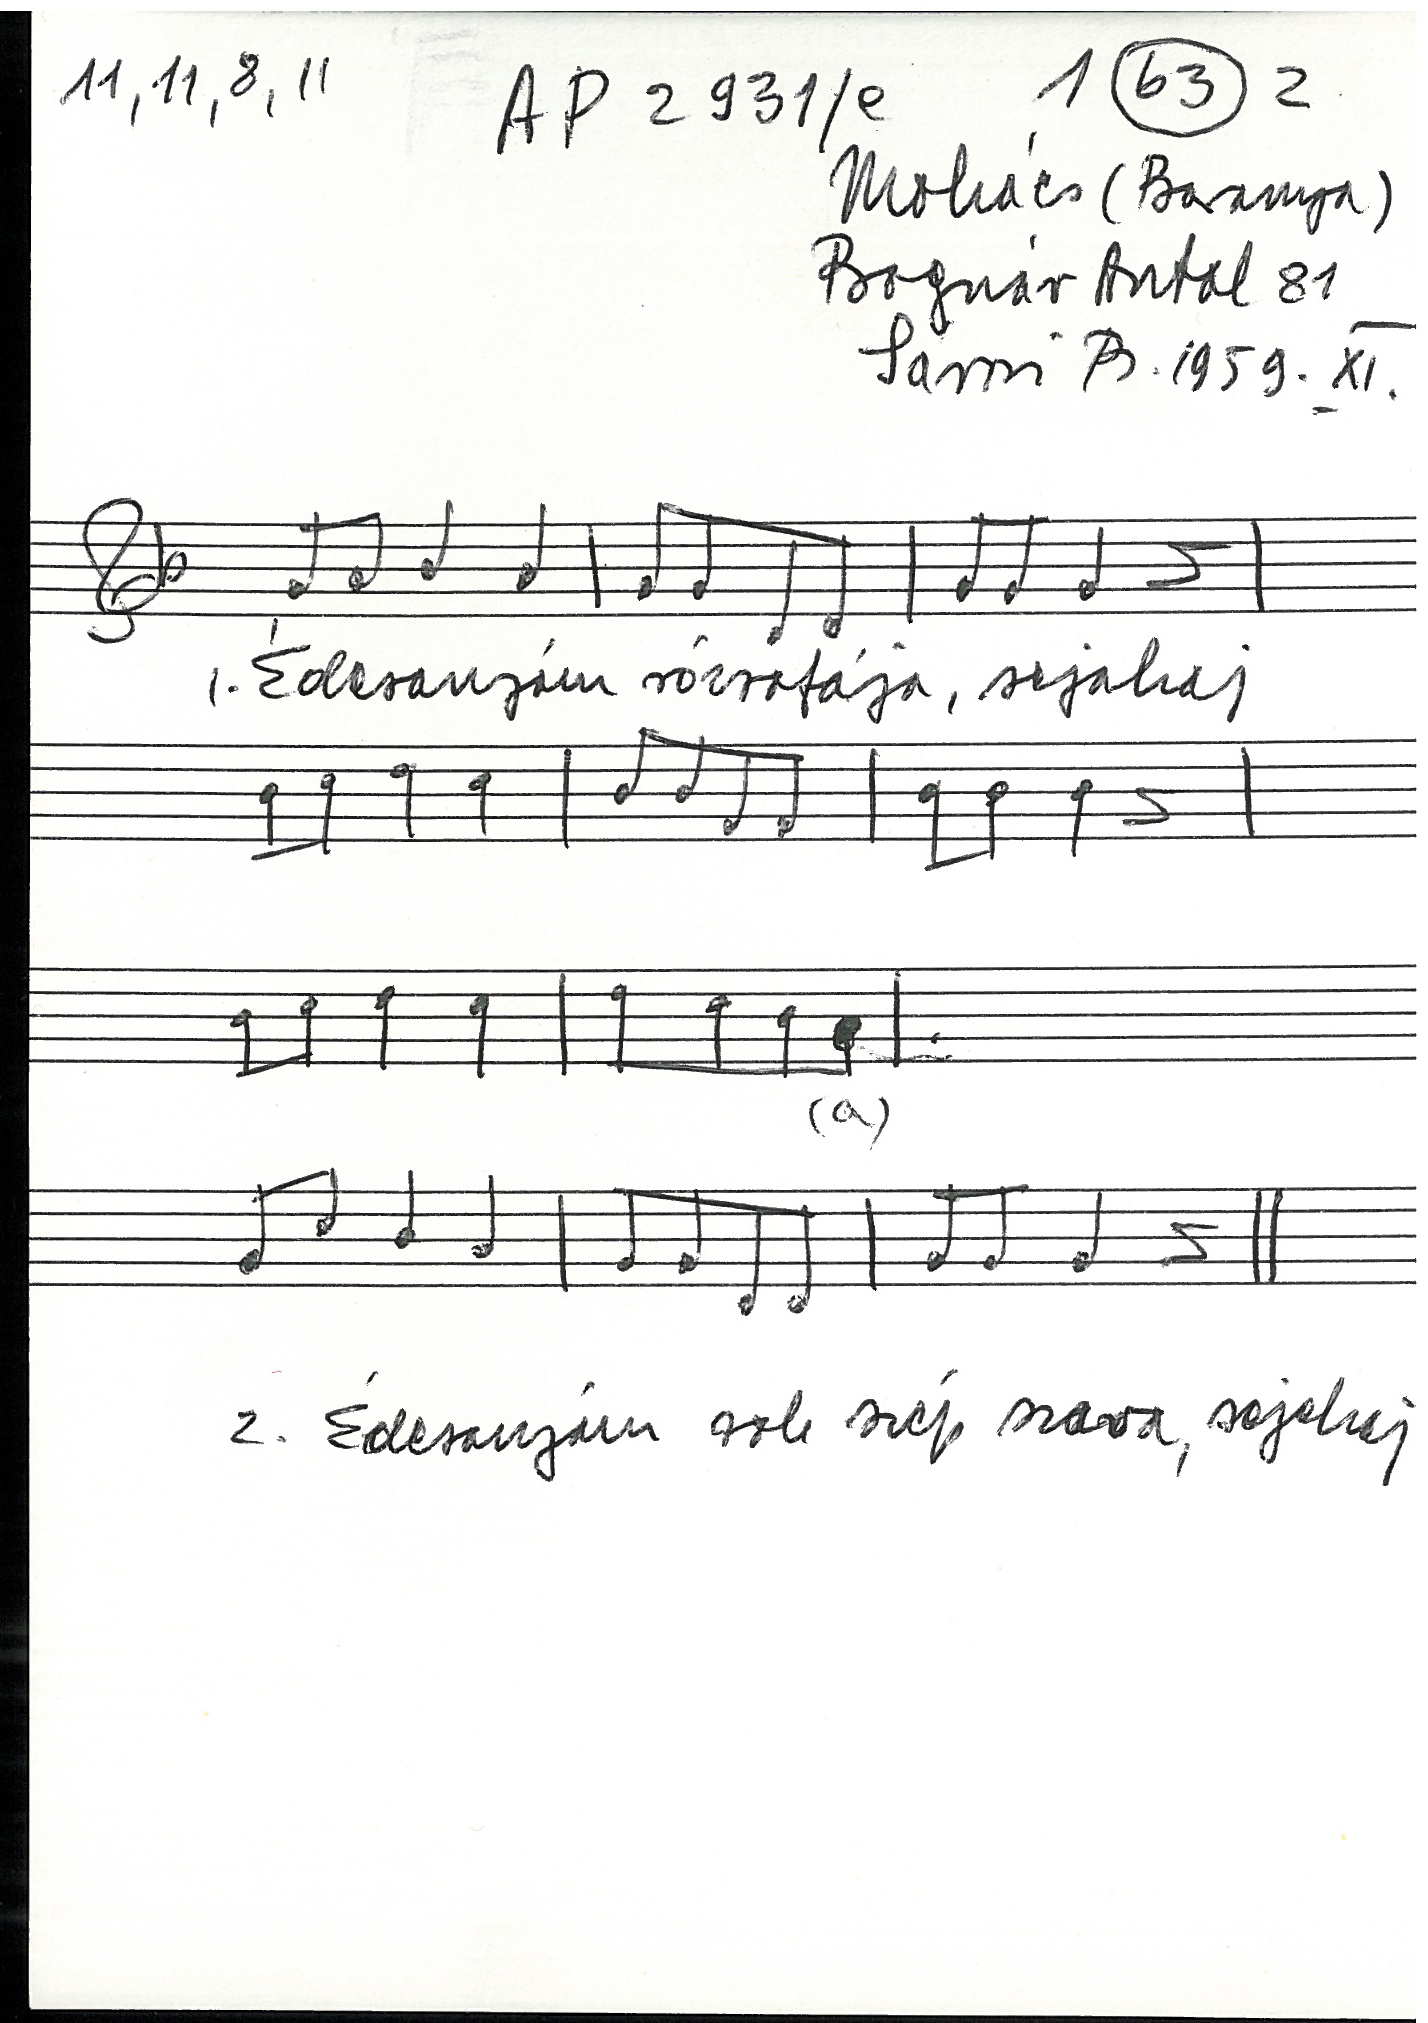 11, 11, 8, 11 AP 2931/e 1 63 2
Mohács (Baranya)
Bognár Antal 81
Sárosi B. 1959. XI.
1. Édesanyám rózsafája, sejahaj
(a)
2. Édesanyám sok szép szava, sejehaj